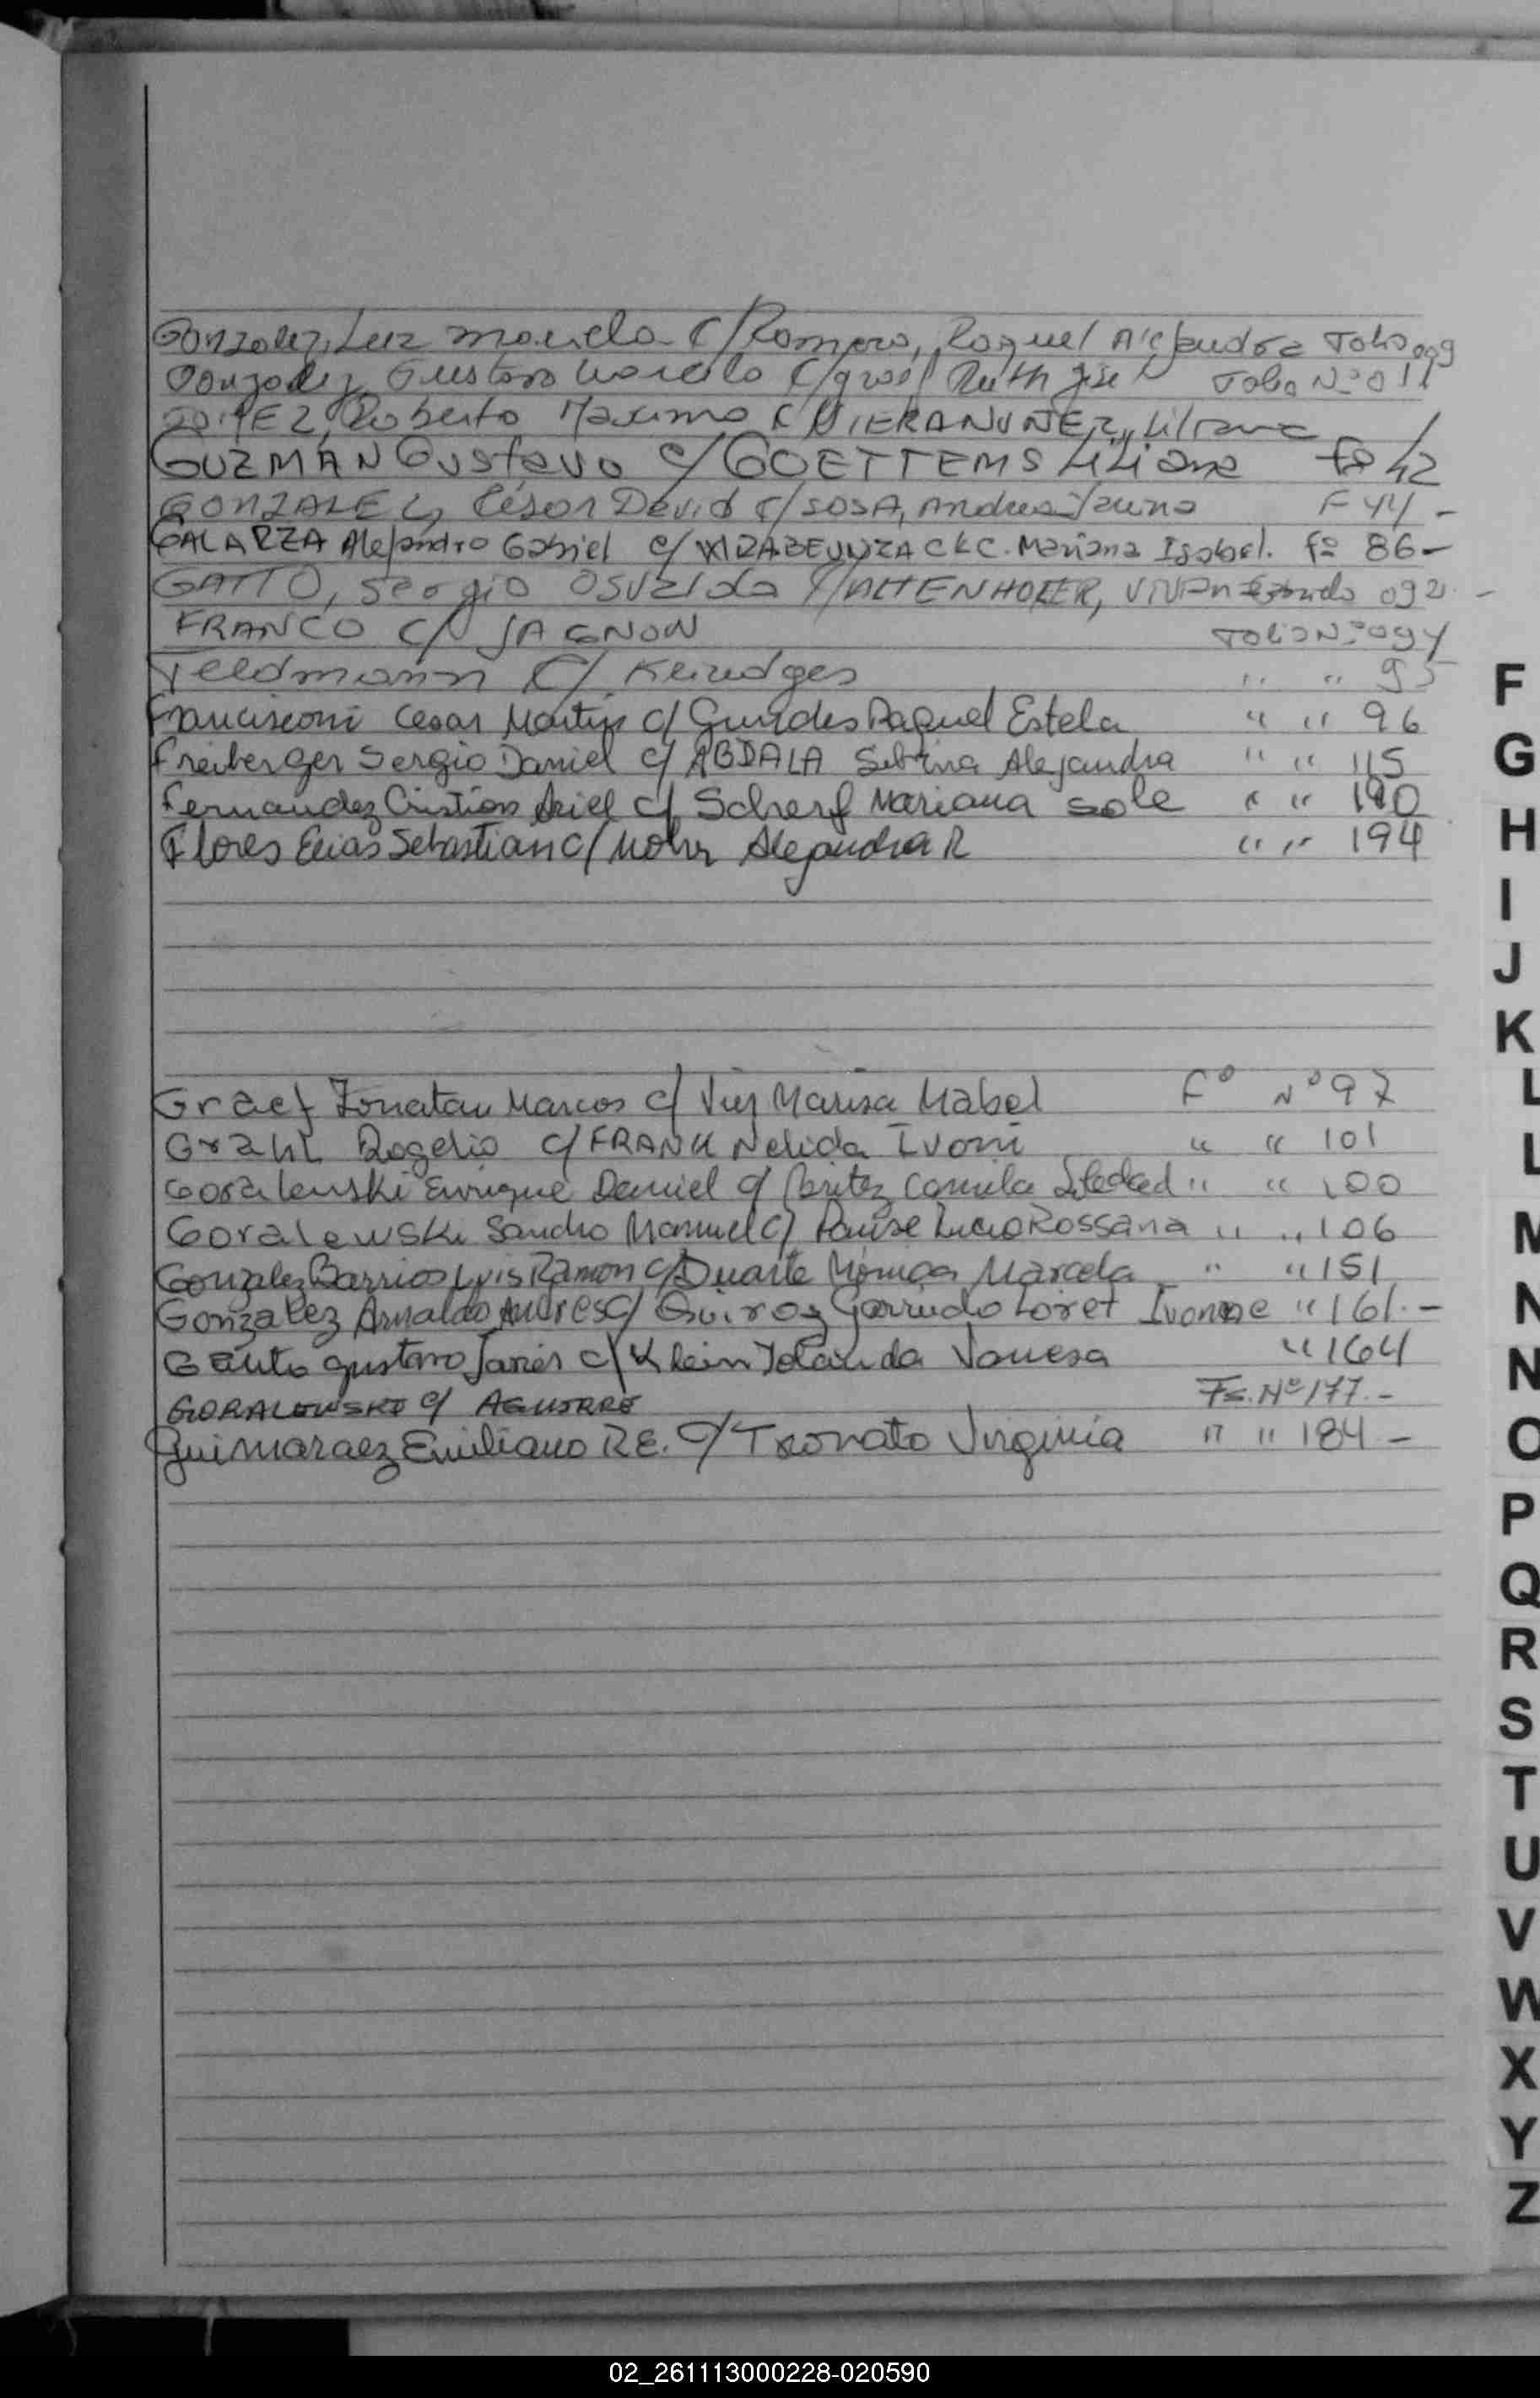 Gonzalez, Luz Mariela c/ Romero, Raquel Alejandra Folio 009
Gonzalez, Gustavo Marcelo c/ Graef Ruth Folio Nº 011
Roberto Maximo c/ Liliana
GUZMAN Gustavo c/ GOETTEMS Liliana Fº 42
GONZALEZ, César David c/ SOSA, Andrea F 44 -
GALARZA Alejandro Gabriel c/ Mariana Isabel. Fº 86 -
GATTO, Sergio Osvaldo c/ ALTENHOFER, 092 -
FRANCO c/ JAGNOW Folio Nº 094
Feldmann c/ " " 95
Francisconi Cesar Martin c/ Raquel Estela " " 96
Freiberger Sergio Daniel c/ ABDALA Sabrina Alejandra " " 115
Fernandez Cristian Ariel c/ Scherf Mariana Sole " " 190
Flores Elias Sebastian c/ Alejandra R " " 194
F
G
H
I
J
K
L
L
M
N
N
O
P
Q
R
S
T
U
V
W
X
Y
Z
Graef Jonatan Marcos c/ Marisa Mabel Fº Nº 97
Grahl Rogelio c/ FRANK Nelida Ivoni " " 101
Goralewski Enrique Daniel c/ Britez Camila Soledad " " 100
Goralewski Sandro Manuel c/ Rossana " " 106
Gonzalez Barrios Luis Ramon c/ Duarte Monica Marcela " " 151
Gonzalez Arnaldo Andres c/ Quiroz Garrudo Loret Ivonne " 161. -
Gauto Gustavo Javier c/ Klein Yolanda Vanesa " 164
GORALEWSKI c/ AGUIRRE Fs. Nº 177. -
Guimaraez Emiliano R E. c/ Tronato Virginia " " 184 -
02_261113000228-020590